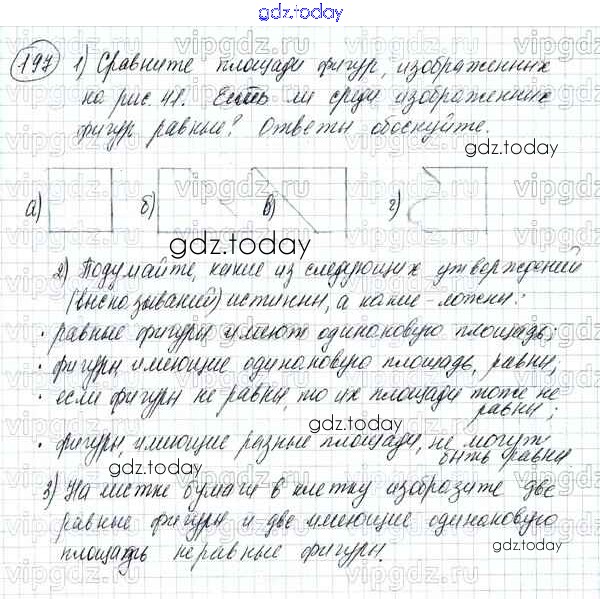 gdz.today
197 1) Сравните площади фигур, изображенных
на рис. 41. Есть ли среди изображенных
фигур равные? Ответы обоснуйте.
gdz.today
а) б) в) г)
gdz.today
2) Подумайте, какие из следующих утверждений
(высказываний) истинны, а какие - ложны:
· равные фигуры имеют одинаковую площадь;
· фигуры, имеющие одинаковую площадь, равны;
· если фигуры не равны, то их площади тоже не
равны;
gdz.today
· фигуры, имеющие разные площади, не могут
быть равны
gdz.today
3) На листке бумаги в клетку изобразите две
равные фигуры и две имеющие одинаковую
площадь неравные фигуры.
gdz.today
vipgdz.ru